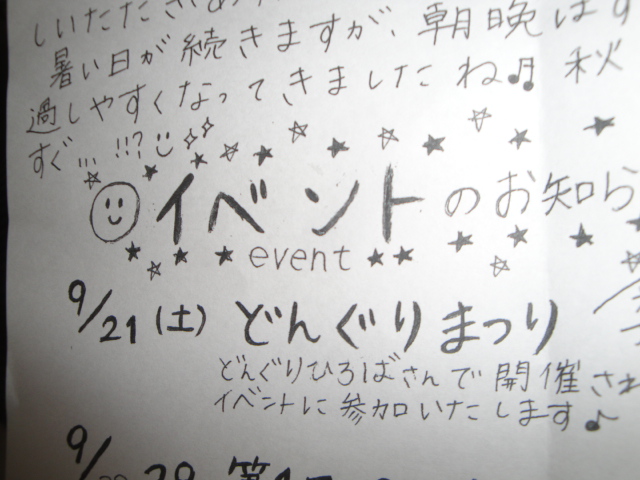 暑い日が続きますが、朝晩は
過しやすくなってきましたね♬ 秋
すぐ…!!?
イベントのお知ら
event
9/21(土) どんぐりまつり
どんぐりひろばさんで開催さ
イベントに参加いたします♪
9/